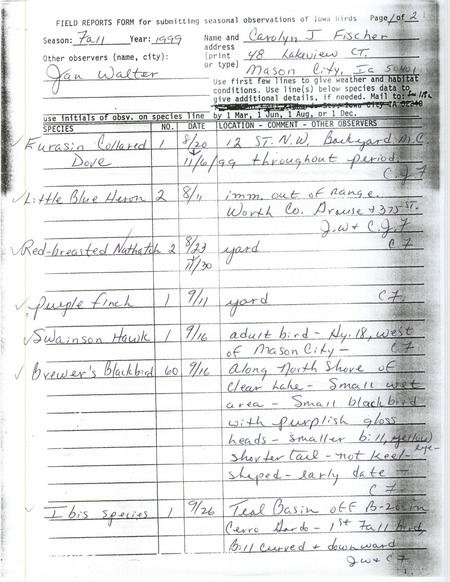 FIELD REPORTS FORM for submitting seasonal observations of Iowa birds Page 1 of 2
Season: Fall Year: 1999 Name and Carolyn J Fischer
address
Other observers (name, city): (print 48 Lakeview CT.
Jan Walter or type) Mason City, Ia 50401
Use first few lines to give weather and habitat
conditions. Use line(s) below species data to
give additional details, if needed. Mail to:
use initials of obsv. on species line by 1 Mar, 1 Jun, 1 Aug, or 1 Dec.
SPECIES NO. DATE LOCATION - COMMENT - OTHER OBSERVERS
Eurasin Collared 1 8/20 12 ST. N.W. Backyard M.C.
Dove 11/6/99 throughout period.
C.J.F
Little Blue Heron 2 8/11 imm. out of range.
Worth Co. + 375 ST.
J.W + C.J.F
Red-breasted Nuthatch 2 8/23 yard C F
11/30
purple finch 1 9/11 yard C F.
Swainson Hawk 1 9/16 adult bird - Hy. 18, west
of Mason City - C F
Brewer's Blackbird 60 9/16 along North Shore of
Clear Lake - Small wet
area - Small blackbird
with purplish gloss
heads - smaller bill, yellow
eye -
shorter tail - not keel-
shaped - early date -
C F
Ibis species 1 9/26 Teal Basin off B-20 in
Cerro Gordo - 1st Fall bird,
Bill curved + downward
JW + C F